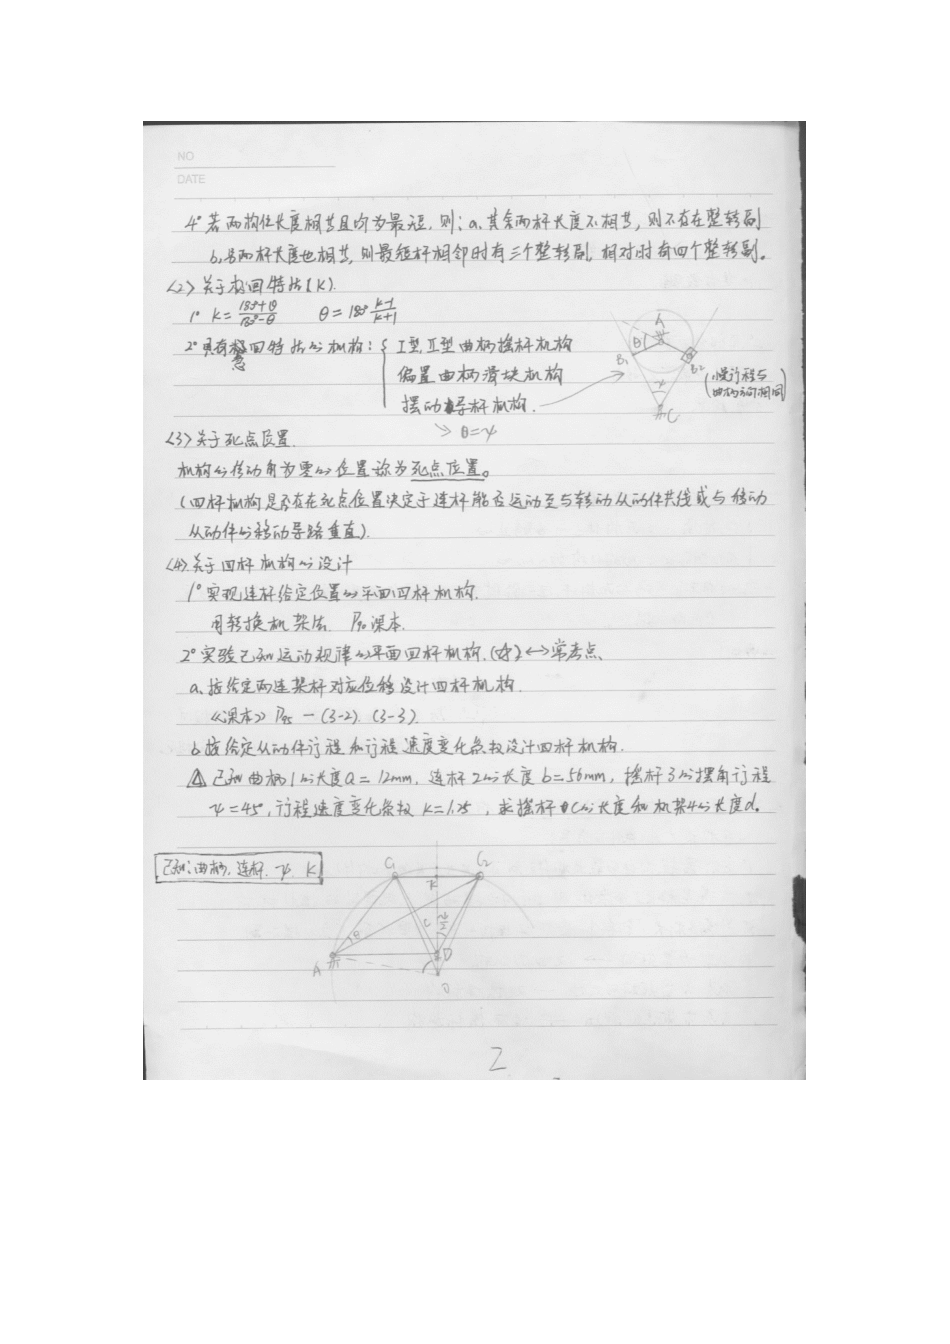 NO
DATE
4° 若两构件长度相等且均为最短,则: a、其余两杆长度不相等,则不存在整转副
b、另两杆长度也相等,则最短杆相邻时有三个整转副,相对时有四个整转副。
<2> 关于极回特性(K).
1° K = (180°+θ)/(180°-θ)    θ = 180° (K-1)/(K+1)
2° 具有急回特性的机构: { I型, II型曲柄摇杆机构
偏置曲柄滑块机构
摆动导杆机构.
⇒ θ=ψ
A
θ
B1
B2
ψ
C
(慢行程与
曲柄方向相同)
<3> 关于死点位置.
机构的传动角为零的位置称为死点位置。
(四杆机构是否存在死点位置决定于连杆能否运动至与转动从动件共线或与移动
从动件的移动导路垂直).
<4> 关于四杆机构的设计
1° 实现连杆给定位置的平面四杆机构.
用转换机架法. 课本.
2° 实验已知运动规律的平面四杆机构. ↔常考点、
a、按给定两连架杆对应位移设计四杆机构.
《课本》 — (3-2). (3-3).
b、按给定从动件行程和行程速度变化系数设计四杆机构.
△ 已知曲柄1的长度a=12mm, 连杆2的长度b=56mm, 摇杆3的摆角行程
ψ=45°, 行程速度变化系数 K=1.25, 求摇杆C的长度和机架4的长度d。
已知: 曲柄, 连杆. ψ. K
C1
C2
K
C
ψ/2
θ
A
D
O
2